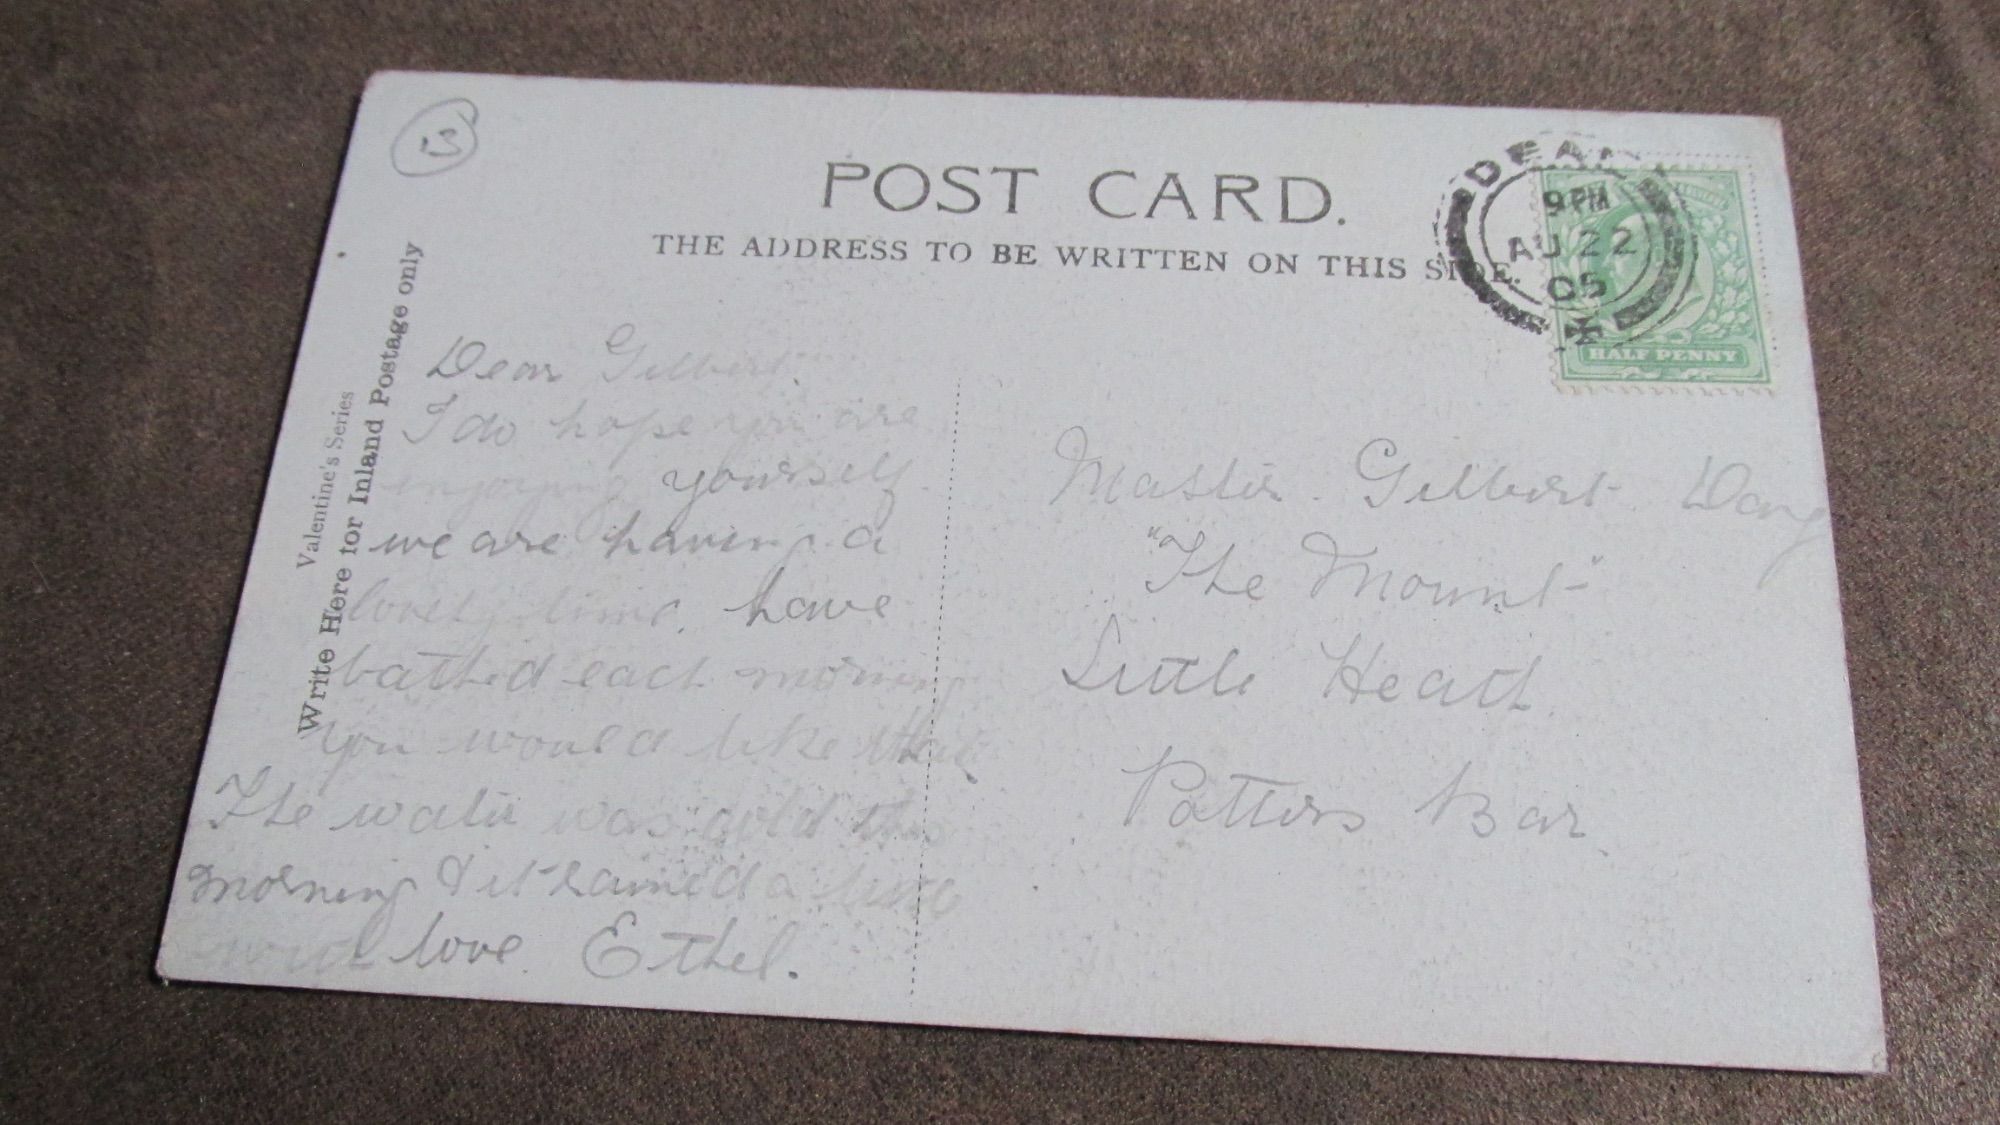 13
POST CARD.
THE ADDRESS TO BE WRITTEN ON THIS SIDE.
DEAL
9 PM
AU 22
05
HALF PENNY
Valentine's Series
Write Here for Inland Postage only
Dear Gilbert
I do hope you are
enjoying yourself.
we are having a
lovely time. have
bathed each morning
you would like that
The water was cold this
morning & it rained a little
with love. Ethel.
Master. Gilbert
"The Mount"
Little Heath
Potters Bar